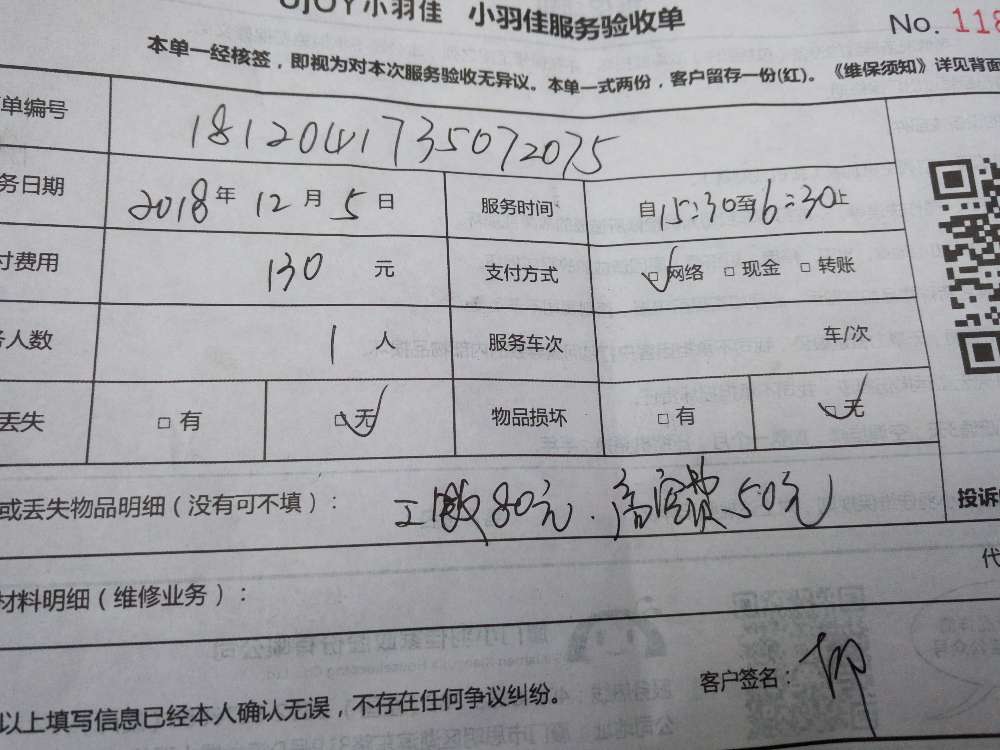 小羽佳 小羽佳服务验收单
No. 118
本单一经核签，即视为对本次服务验收无异议。本单一式两份，客户留存一份(红)。《维保须知》详见背面
单编号 1812041735072075
务日期 2018年 12月 5日 服务时间 自15:30至16:30止
付费用 130 元 支付方式 □网络 □现金 □转账
人数 1 人 服务车次 车/次
丢失 □有 □无 物品损坏 □有 □无
或丢失物品明细（没有可不填）： 80元、高空费50元
投诉
代
材料明细（维修业务）：
客户签名：
以上填写信息已经本人确认无误，不存在任何争议纠纷。